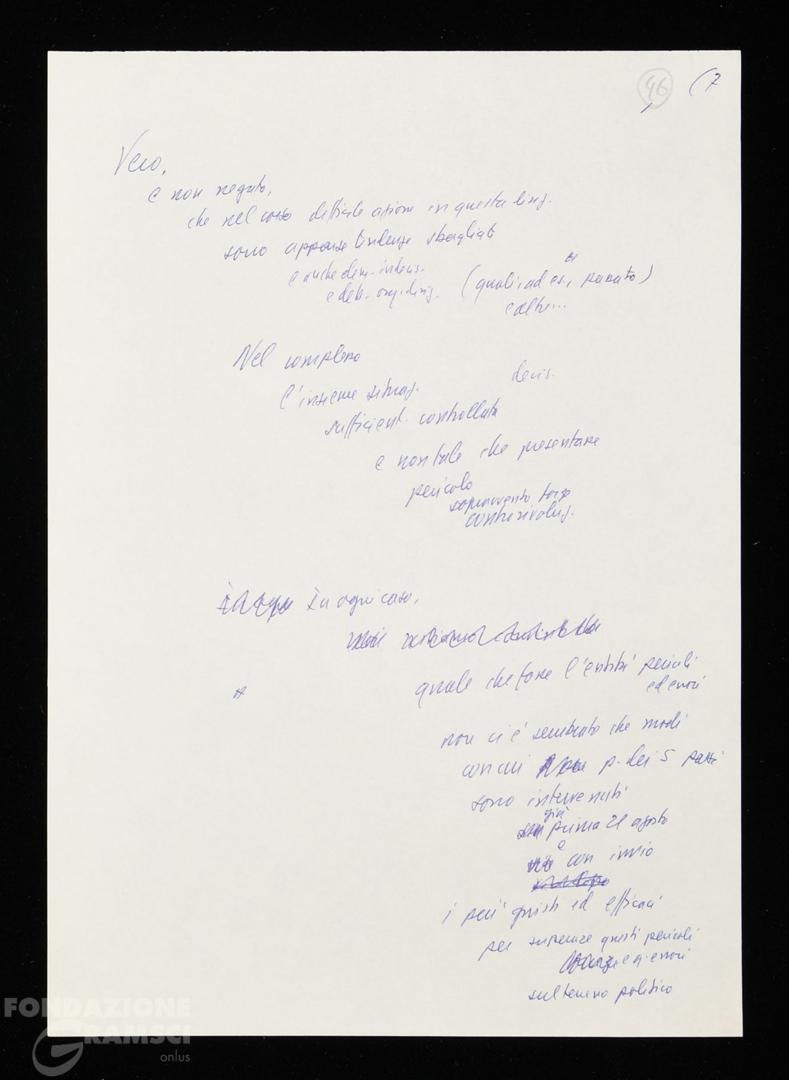 46 (7
Vero,
e non negato,
che nel corso difficile azione in questa ling.
sono apparse tendenze sbagliate
e anche dem.
e deb. org. ding. (quali, ad es.,
e altre...
Nel complesso
l'insieme situaz. decis.
sufficient. controllata
e non tale che presentare
pericolo
sopravvento forze
controrivoluz.
In ogni caso,
quale che fosse l'entità pericoli
ed errori
non ci è sembrato che modi
con cui p. dei 5 partiti
sono intervenuti
già
prima 21 agosto
e
con invio
i più giusti ed efficaci
per superare questi pericoli
e q. errori
sul terreno politico
FONDAZIONE
GRAMSCI
onlus